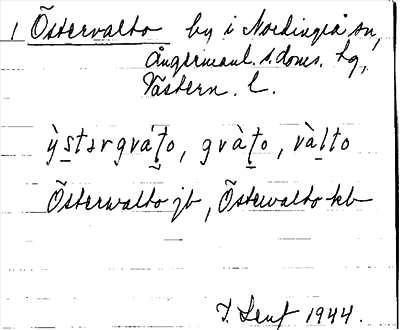 1 Östervalto by i Nordingrå sn,
Ångermanl. s. doms. hg,
Västern. l.
ỳstərgvàto, gvàto, vàlto
Österwalto jb, Östervalto kb
1944.